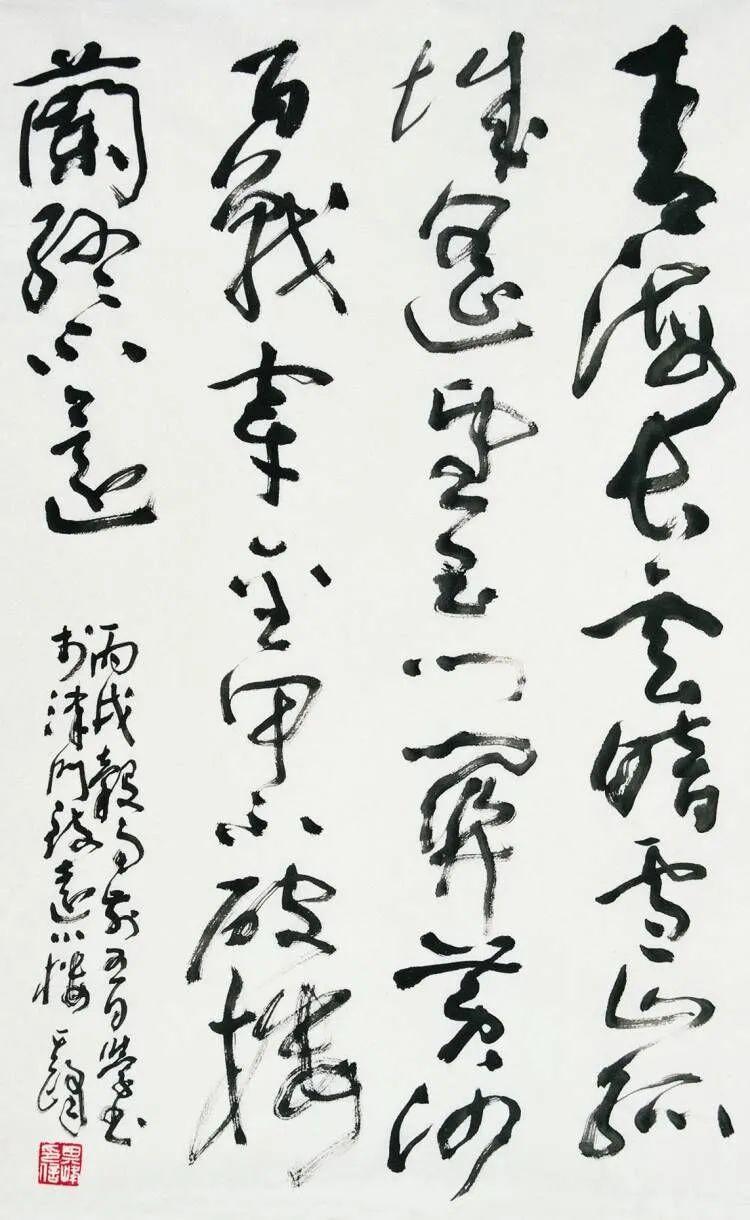 青海長云暗雪山孤
城遙望玉門關黃沙
百戰穿金甲不破樓
蘭終不還
丙戌穀雨前五日學书
於津門致遠小樓